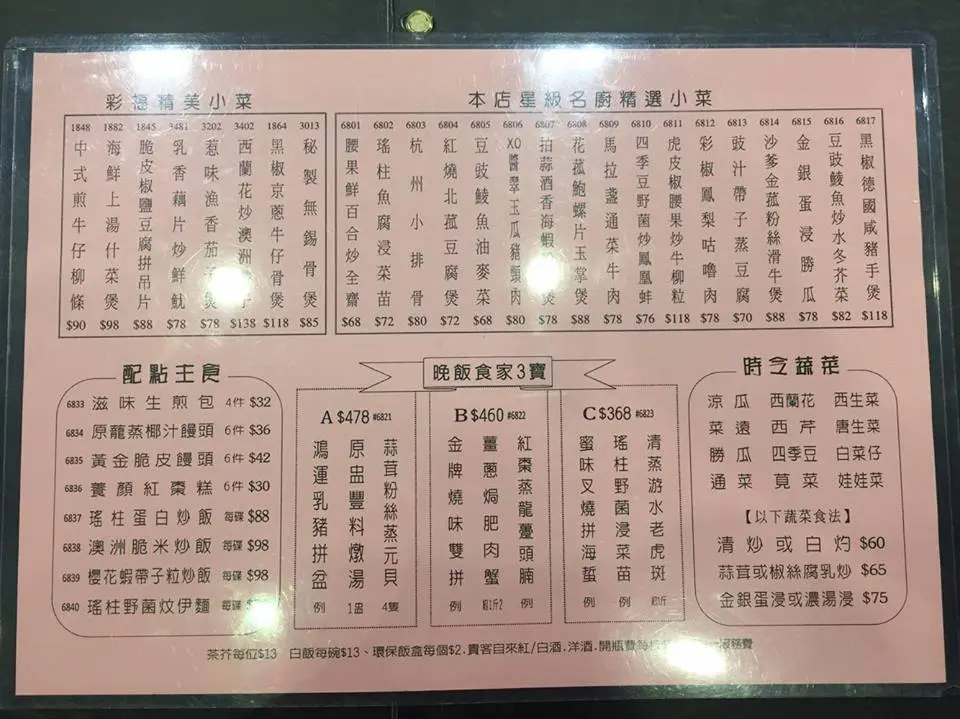 彩福精美小菜
1848 中式煎牛仔柳條 $90
1882 海鮮上湯什菜煲 $98
1845 脆皮椒鹽豆腐拼吊片 $88
3481 乳香藕片炒鮮魷 $78
3202 惹味漁香茄子煲 $78
3402 西蘭花炒澳洲帶子 $138
1864 黑椒京蔥牛仔骨煲 $118
3013 秘製無錫骨煲 $85
本店星級名廚精選小菜
6801 腰果鮮百合炒全齋 $68
6802 瑤柱魚腐浸菜苗 $72
6803 杭州小排骨 $80
6804 紅燒北菰豆腐煲 $72
6805 豆豉鯪魚油麥菜 $68
6806 XO醬翠玉瓜豬頸肉 $80
6807 拍蒜酒香海蝦 $78
6808 花菰鮑螺片玉掌煲 $88
6809 馬拉盞通菜牛肉 $78
6810 四季豆野菌炒鳳凰蚌 $76
6811 虎皮椒腰果炒牛柳粒 $118
6812 彩椒鳳梨咕嚕肉 $78
6813 豉汁帶子蒸豆腐 $70
6814 沙爹金菰粉絲滑牛煲 $88
6815 金銀蛋浸勝瓜 $78
6816 豆豉鯪魚炒水冬芥菜 $82
6817 黑椒德國咸豬手煲 $118
配點主食
6833 滋味生煎包 4件 $32
6834 原籠蒸椰汁饅頭 6件 $36
6835 黃金脆皮饅頭 6件 $42
6836 養顏紅棗糕 6件 $30
6837 瑤柱蛋白炒飯 每碟 $88
6838 澳洲脆米炒飯 每碟 $98
6839 櫻花蝦帶子粒炒飯 每碟 $98
6840 瑤柱野菌炆伊麵 每碟
晚飯食家3寶
A $478 #6821
蒜茸粉絲蒸元貝 4隻
原盅豐料燉湯 1盅
鴻運乳豬拼盆 例
B $460 #6822
紅棗蒸龍躉頭腩 例
薑蔥焗肥肉蟹 1斤2
金牌燒味雙拼 例
C $368 #6823
清蒸游水老虎斑
瑤柱野菌浸菜苗 例
蜜味叉燒拼海蜇 例
時令蔬菜
涼瓜 西蘭花 西生菜
菜遠 西芹 唐生菜
勝瓜 四季豆 白菜仔
通菜 莧菜 娃娃菜
【以下蔬菜食法】
清炒或白灼 $60
蒜茸或椒絲腐乳炒 $65
金銀蛋浸或濃湯浸 $75
茶芥每位$13 白飯每碗$13、環保飯盒每個$2.貴客自來紅/白酒.洋酒.開瓶費每 服務費